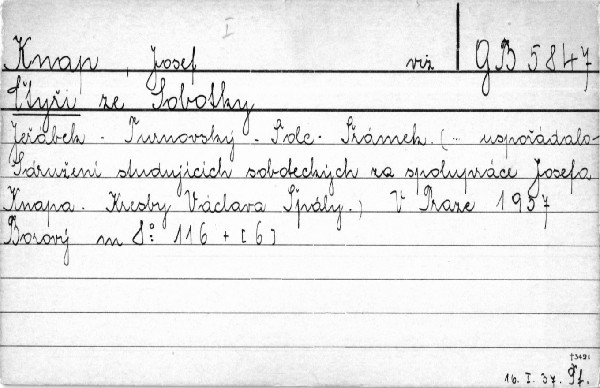 I
Knap, Josef viz GB 5847
Čtyři ze Sobotky
Jeřábek - Turnovský - Šolc - Šrámek. (- uspořádalo-
Sdružení studujících soboteckých za spolupráce Josefa
Knapa. Kresby Václava Špály.) V Praze 1937
Borový m 8° 116 + [6]
†3421
16. I. 37. Pf.